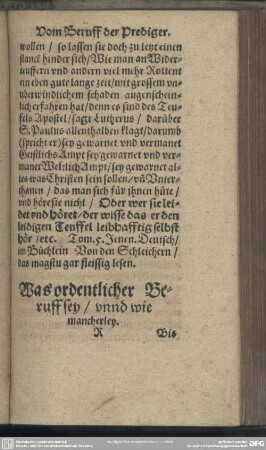 Vom Beruff der Prediger.
wollen / so lassen sie doch zu letzt einen
stanck hinder sich / Wie man an Wider-
teuffern vnd andern viel mehr Rottent
en eben gute lange zeit / mit grossem vn
vberwindlichem schaden augenschein-
lich erfahren hat / denn es sind des Teu-
fels Apostel / sagt Lutherus / darüber
S. Paulus allenthalben klagt / darumb
(spricht er) sey gewarnet vnd vermanet
Geistlichs Ampt sey gewarnet vnd ver-
manet Weltlich Ampt / sey gewarnet al-
les was Christen sein sollen / vñ Vnter-
thanen / das man sich für jhnen hüte /
vnd höre sie nicht / Oder wer sie lei-
det vnd höret / der wisse das er den
leidigen Teuffel leibhafftig selbst
hör / etc. Tom. 5. Jenen. Deutsch /
im Büchlein Von den Schleichern /
das magstu gar fleissig lesen.
Was ordentlicher Be-
ruff sey / vnnd wie
mancherley.
R
Bis